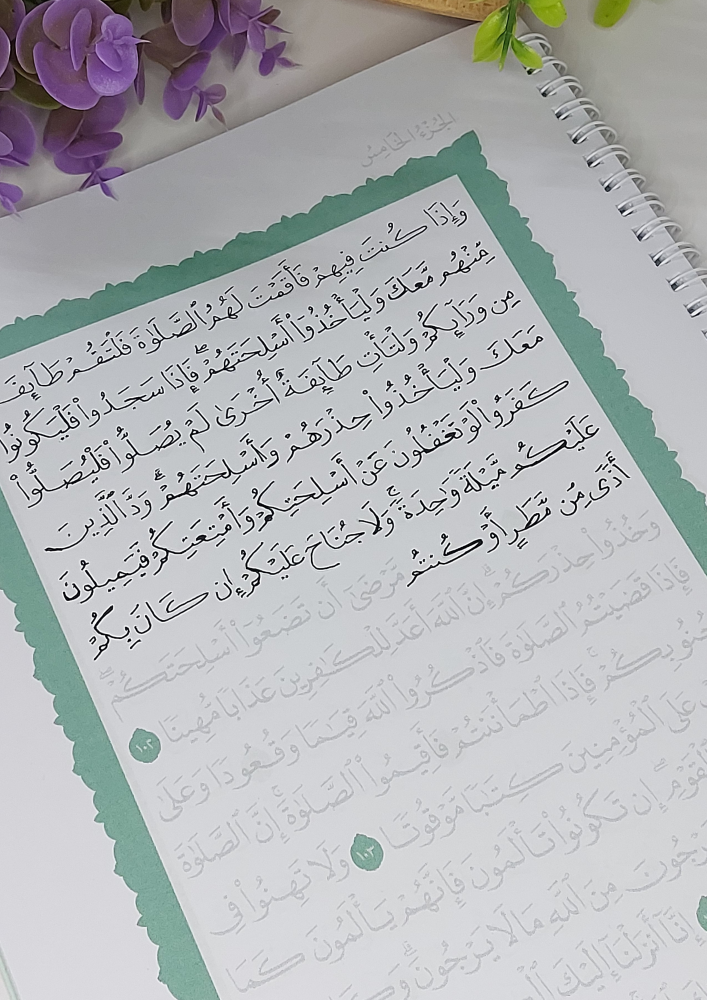 الجزء الخامس
وَإِذَا كُنتَ فِيهِمْ فَأَقَمْتَ لَهُمُ ٱلصَّلَوٰةَ فَلْتَقُمْ طَآئِفَ
مِّنْهُم مَّعَكَ وَلْيَأْخُذُوٓا۟ أَسْلِحَتَهُمْ ۖ فَإِذَا سَجَدُوا۟ فَلْيَكُونُوا۟
مِن وَرَآئِكُمْ وَلْتَأْتِ طَآئِفَةٌ أُخْرَىٰ لَمْ يُصَلُّوا۟ فَلْيُصَلُّوا۟
مَعَكَ وَلْيَأْخُذُوا۟ حِذْرَهُمْ وَأَسْلِحَتَهُمْ ۗ وَدَّ ٱلَّذِينَ
كَفَرُوا۟ لَوْ تَغْفُلُونَ عَنْ أَسْلِحَتِكُمْ وَأَمْتِعَتِكُمْ فَيَمِيلُونَ
عَلَيْكُم مَّيْلَةً وَٰحِدَةً ۚ وَلَا جُنَاحَ عَلَيْكُمْ إِن كَانَ بِكُمْ
أَذًى مِّن مَّطَرٍ أَوْ كُنتُم مَّرْضَىٰٓ أَن تَضَعُوٓا۟ أَسْلِحَتَكُمْ ۖ
وَخُذُوا۟ حِذْرَكُمْ ۗ إِنَّ ٱللَّهَ أَعَدَّ لِلْكَٰفِرِينَ عَذَابًا مُّهِينًا ١٠٢
فَإِذَا قَضَيْتُمُ ٱلصَّلَوٰةَ فَٱذْكُرُوا۟ ٱللَّهَ قِيَٰمًا وَقُعُودًا وَعَلَىٰ
جُنُوبِكُمْ ۚ فَإِذَا ٱطْمَأْنَنتُمْ فَأَقِيمُوا۟ ٱلصَّلَوٰةَ ۚ إِنَّ ٱلصَّلَوٰةَ
عَلَى ٱلْمُؤْمِنِينَ كِتَٰبًا مَّوْقُوتًا ١٠٣ وَلَا تَهِنُوا۟ فِى
ٱلْقَوْمِ ۖ إِن تَكُونُوا۟ تَأْلَمُونَ فَإِنَّهُمْ يَأْلَمُونَ كَمَا
تَرْجُونَ مِنَ ٱللَّهِ مَا لَا يَرْجُونَ ۗ
إِنَّآ أَنزَلْنَآ إِلَيْكَ